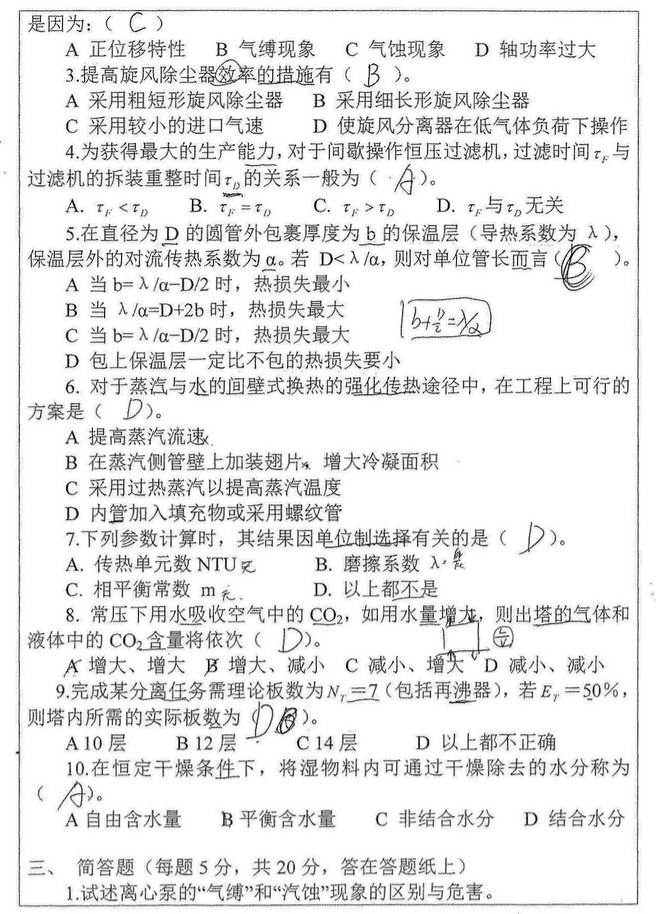 是因为:( C )
A 正位移特性 B 气缚现象 C 气蚀现象 D 轴功率过大
3.提高旋风除尘器效率的措施有( B )。
A 采用粗短形旋风除尘器 B 采用细长形旋风除尘器
C 采用较小的进口气速 D 使旋风分离器在低气体负荷下操作
4.为获得最大的生产能力,对于间歇操作恒压过滤机,过滤时间τF与
过滤机的拆装重整时间τD的关系一般为( A )。
A. τF<τD B. τF=τD C. τF>τD D. τF与τD无关
5.在直径为 D 的圆管外包裹厚度为 b 的保温层(导热系数为 λ),
保温层外的对流传热系数为α。若 D<λ/α,则对单位管长而言( B )。
A 当 b=λ/α-D/2 时,热损失最小
B 当 λ/α=D+2b 时,热损失最大
C 当 b=λ/α-D/2 时,热损失最大
D 包上保温层一定比不包的热损失要小
6. 对于蒸汽与水的间壁式换热的强化传热途径中,在工程上可行的
方案是( D )。
A 提高蒸汽流速
B 在蒸汽侧管壁上加装翅片,增大冷凝面积
C 采用过热蒸汽以提高蒸汽温度
D 内管加入填充物或采用螺纹管
7.下列参数计算时,其结果因单位制选择有关的是( D )。
A. 传热单元数 NTU 无 B. 磨擦系数 λ
C. 相平衡常数 m 无 D. 以上都不是
8. 常压下用水吸收空气中的 CO2,如用水量增大,则出塔的气体和
液体中的 CO2 含量将依次( D )。
A 增大、增大 B 增大、减小 C 减小、增大 D 减小、减小
9.完成某分离任务需理论板数为NT=7(包括再沸器),若ET=50%,
则塔内所需的实际板数为( D B )。
A 10 层 B 12 层 C 14 层 D 以上都不正确
10.在恒定干燥条件下,将湿物料内可通过干燥除去的水分称为
( A )。
A 自由含水量 B 平衡含水量 C 非结合水分 D 结合水分
三、 简答题(每题 5 分,共 20 分,答在答题纸上)
1.试述离心泵的“气缚”和“汽蚀”现象的区别与危害。